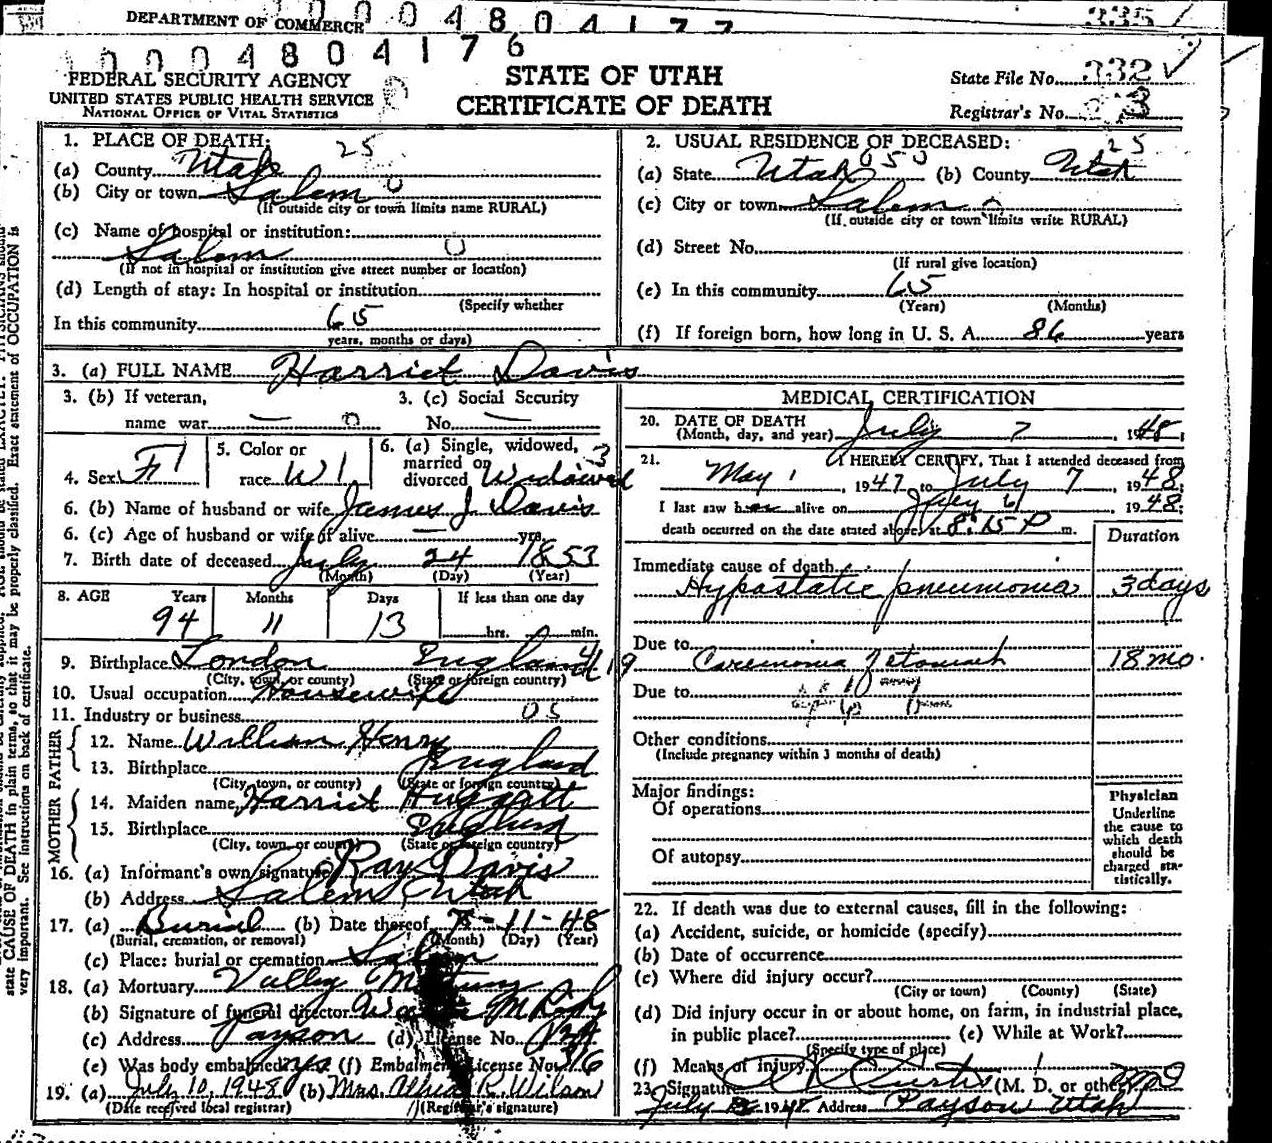 DEPARTMENT OF COMMERCE 0004804177 335
0004804176
FEDERAL SECURITY AGENCY
UNITED STATES PUBLIC HEALTH SERVICE
NATIONAL OFFICE OF VITAL STATISTICS
STATE OF UTAH
CERTIFICATE OF DEATH
State File No. 332
Registrar's No. 3
state CAUSE OF DEATH in plain terms, so that it may be properly classified. Exact statement of OCCUPATION is
very important. See instructions on back of certificate.
1. PLACE OF DEATH: 25
(a) County Utah
(b) City or town Salem 0
(If outside city or town limits name RURAL)
(c) Name of hospital or institution:
Salem 0
(If not in hospital or institution give street number or location)
(d) Length of stay: In hospital or institution
(Specify whether
In this community 65
years, months or days)
2. USUAL RESIDENCE OF DECEASED: 25
(a) State Utah 050 (b) County Utah
(c) City or town Salem
(If outside city or town limits write RURAL)
(d) Street No.
(If rural give location)
(e) In this community 65
(Years) (Months)
(f) If foreign born, how long in U. S. A. 86 years
3. (a) FULL NAME Harriet Davis
3. (b) If veteran, 3. (c) Social Security
name war — 0 No. —
4. Sex F 1 5. Color or race W 1 6. (a) Single, widowed, married or divorced Widowed 3
6. (b) Name of husband or wife James J Davis
6. (c) Age of husband or wife if alive — yrs.
7. Birth date of deceased July 24 1853
(Month) (Day) (Year)
8. AGE Years Months Days If less than one day
94 11 13 hrs. min.
9. Birthplace London England 419
(City, town, or county) (State or foreign country)
10. Usual occupation Housewife
11. Industry or business 05
FATHER
12. Name William Henry
13. Birthplace England
(City, town, or county) (State or foreign country)
MOTHER
14. Maiden name Harriet Huggett
15. Birthplace England
(City, town, or county) (State or foreign country)
16. (a) Informant's own signature Ray Davis
(b) Address Salem, Utah
17. (a) Burial (b) Date thereof 7-11-48
(Burial, cremation, or removal) (Month) (Day) (Year)
(c) Place: burial or cremation Salem
18. (a) Mortuary Valley Mortuary
(b) Signature of funeral director
(c) Address Payson (d) License No.
(e) Was body embalmed? yes (f) Embalmer License No. 316
19. (a) July 10, 1948 (b) Mrs. R. Wilson
(Date received local registrar) (Registrar's signature)
MEDICAL CERTIFICATION
20. DATE OF DEATH
(Month, day, and year) July 7, 1948;
21. I HEREBY CERTIFY, That I attended deceased from
May 1, 1947 to July 7 1948;
I last saw her alive on July 6, 1948;
death occurred on the date stated above, at 8:15 P m.
Duration
Immediate cause of death
Hypostatic pneumonia 3 days
Due to
18 mo.
Due to
Other conditions
(Include pregnancy within 3 months of death)
Major findings:
Of operations
Of autopsy
Physician
Underline
the cause to
which death
should be
charged sta-
tistically.
22. If death was due to external causes, fill in the following:
(a) Accident, suicide, or homicide (specify)
(b) Date of occurrence
(c) Where did injury occur?
(City or town) (County) (State)
(d) Did injury occur in or about home, on farm, in industrial place,
in public place? (e) While at Work?
(Specify type of place)
(f) Means of injury
23. Signature Curtis (M. D. or other) MD
July 1948 Address Payson Utah